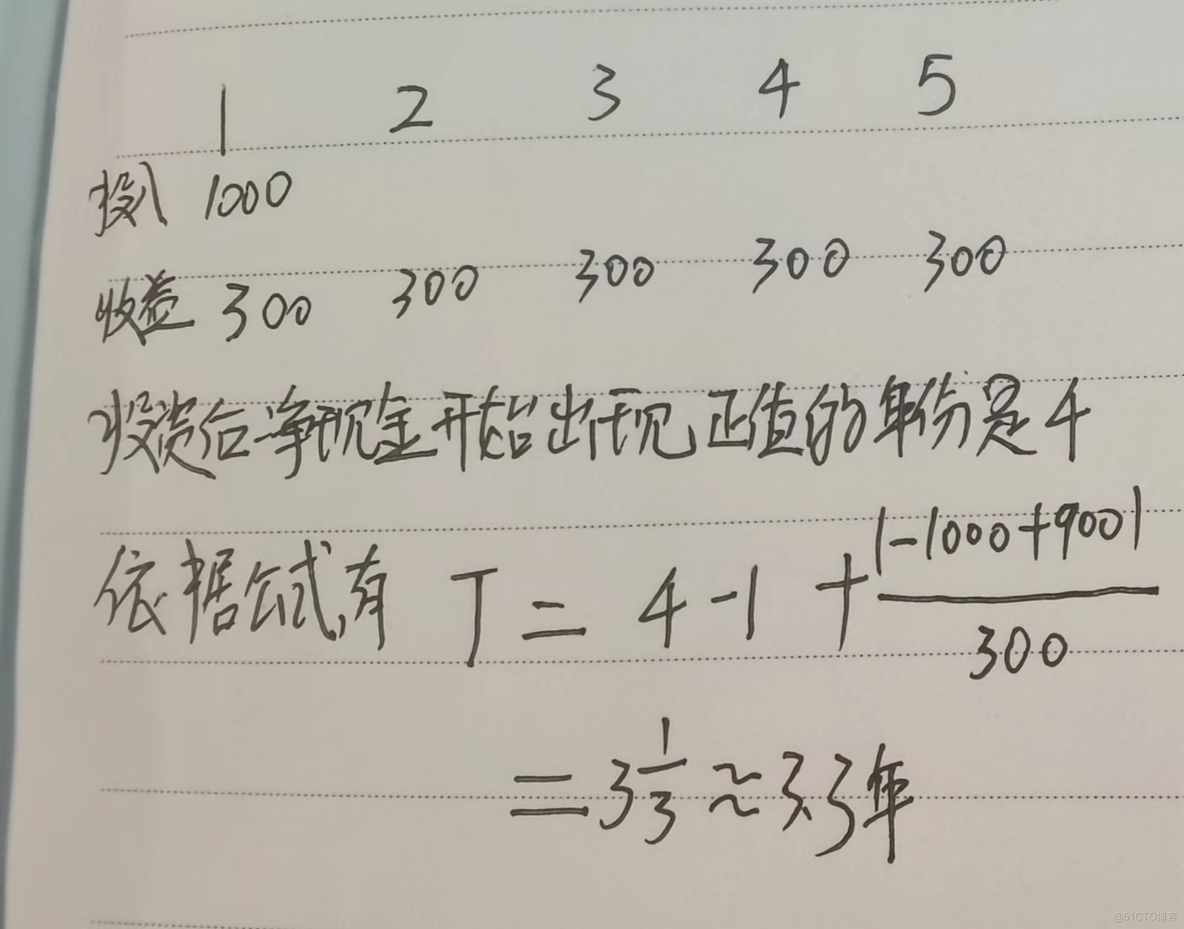 1 2 3 4 5
投入 1000
收益 300 300 300 300 300
投资后净现金开始出现正值的年份是4
依据公式,有 T = 4-1 + |-1000+900| / 300
= 3 1/3 ≈ 3.3年
@51CTO博客